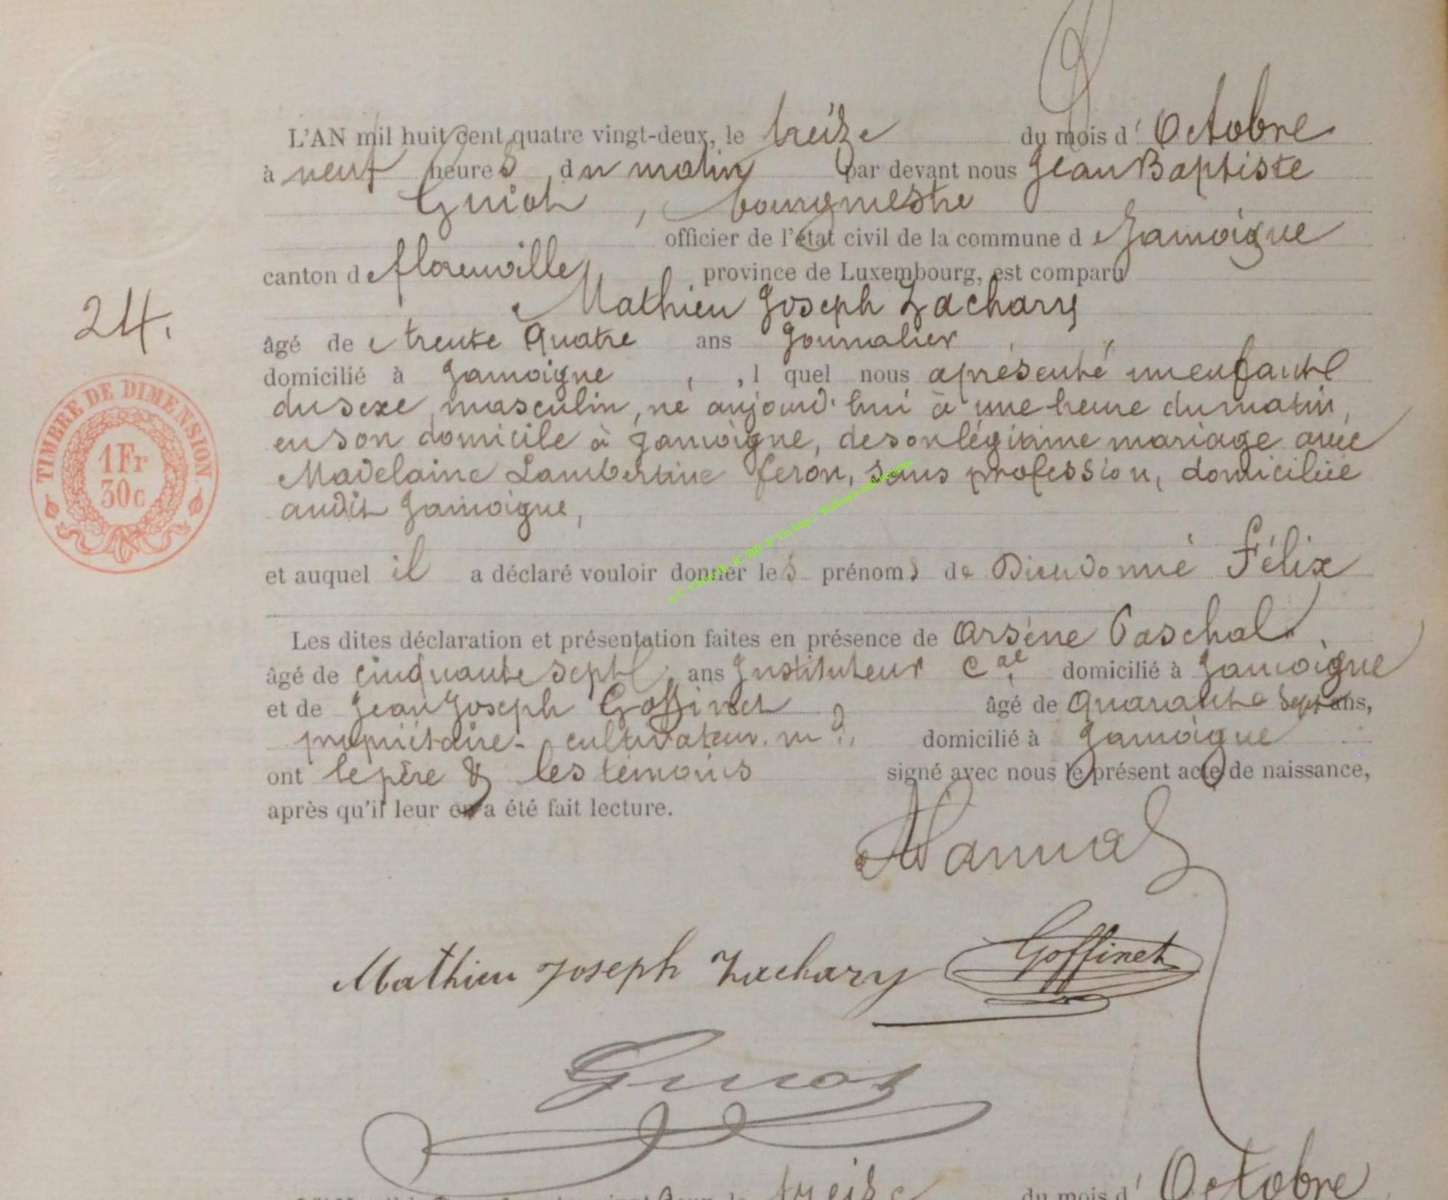 L'AN mil huit cent quatre vingt-deux, le treize du mois d'Octobre
à neuf heures du matin par devant nous Jean Baptiste
Guiot, bourgmestre
officier de l'état civil de la commune de Jamoigne
canton de florenville province de Luxembourg, est comparu
Mathieu Joseph Zachary
24.
âgé de trente quatre ans Journalier
domicilié à Jamoigne, , l quel nous a présenté un enfant
du sexe masculin, né aujourd'hui à une heure du matin,
en son domicile à Jamoigne, de son légitime mariage avec
Madelaine Lambertine feron, sans profession, domiciliée
audit Jamoigne,
TIMBRE DE DIMENSION
1Fr
30c
et auquel il a déclaré vouloir donner les prénoms de Dieudonné Félix
Les dites déclaration et présentation faites en présence de Arsène Paschal
âgé de cinquante sept ans Instituteur Cal domicilié à Jamoigne
et de Jean Joseph Goffinet âgé de Quarante sept ans,
propriétaire-cultivateur. domicilié à Jamoigne
ont le père & les témoins signé avec nous le présent acte de naissance,
après qu'il leur en a été fait lecture.
Mathieu Joseph Zachary Goffinet
Guiot
treize du mois d'Octobre